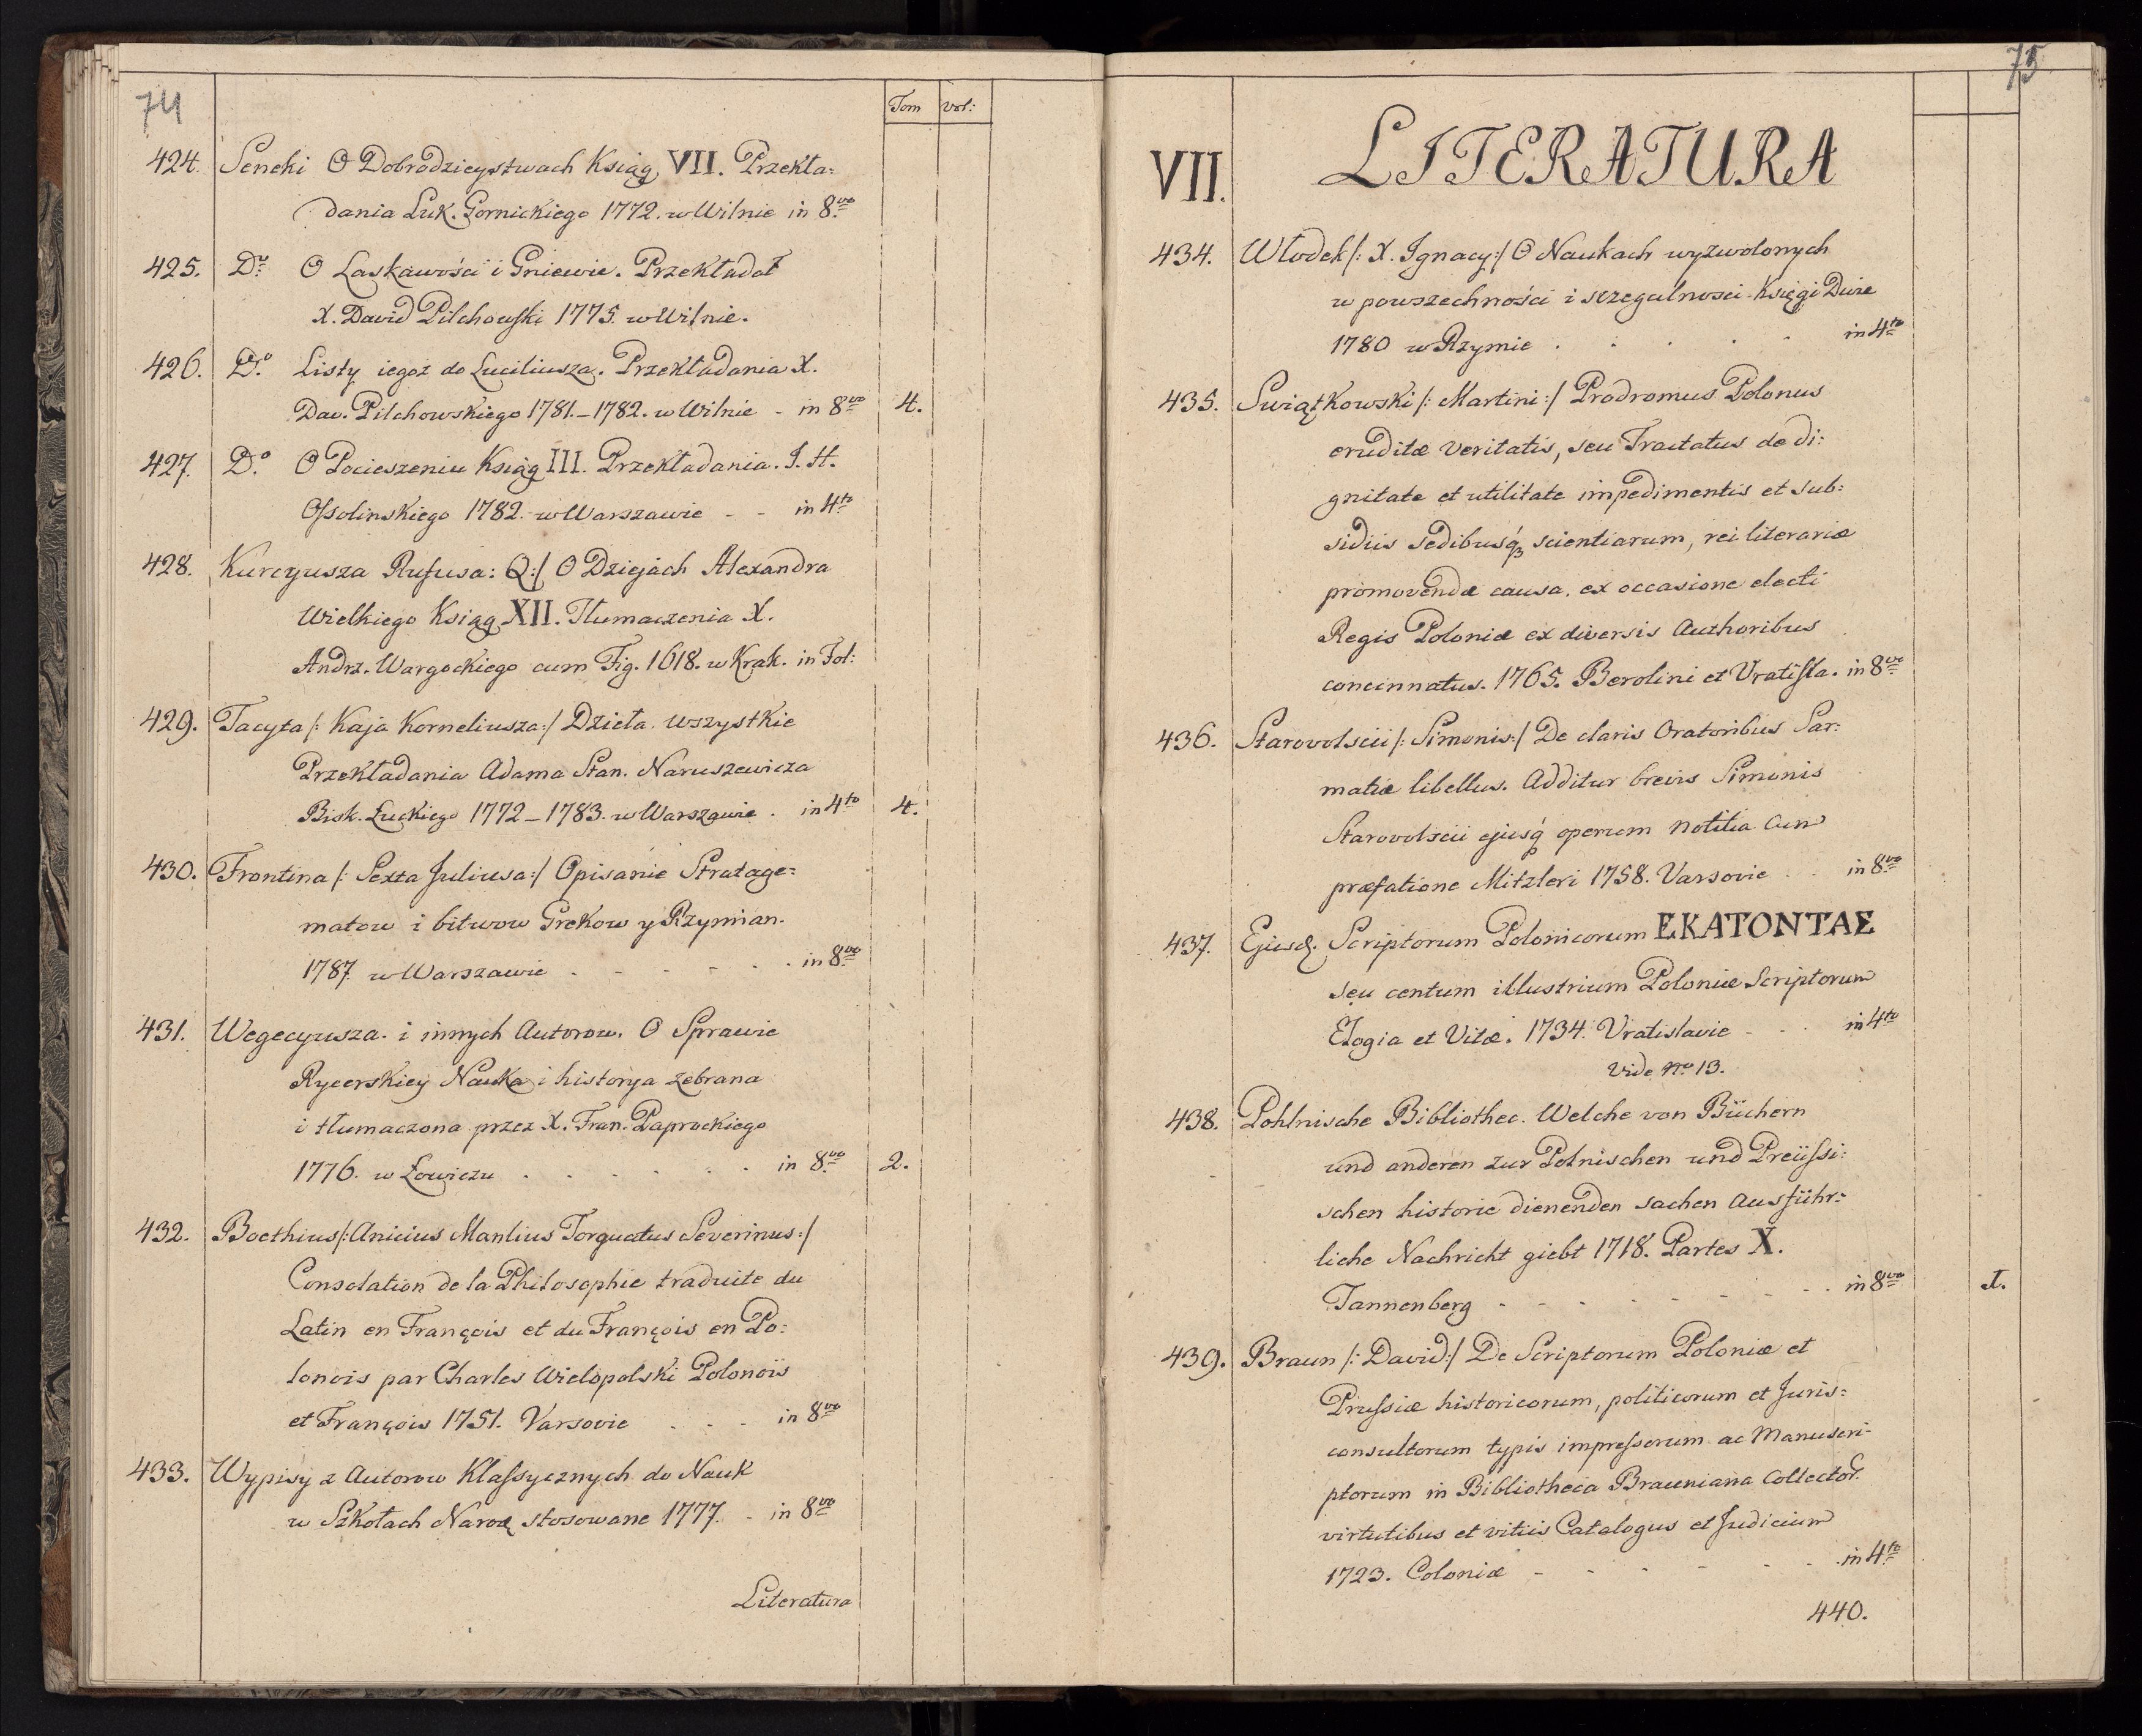 74
Tom vol:
424. Seneki O Dobrodzieystwach Ksiąg VII. Przekła:
dania Luk. Gornickiego 1772. w Wilnie in 8.vo
425. Do O Laskawości i Gniewie. Przekładał
X. David Pilchowski 1775. w Wilnie.
426. Do Listy iegoż do Luciliusza. Przekładania X.
Dav. Pilchowskiego 1781.-1782. w Wilnie - in 8vo 4.
427. Do O Pocieszeniu Ksiąg III. Przekładania. J. H.
Ossolinskiego 1782. w Warszawie - - in 4to
428. Kurcyusza Rufusa: Q:/ O Dziejach Alexandra
Wielkiego Ksiąg XII. Tłumaczenia X.
Andrz. Wargockiego cum Fig. 1618. w Krak. in Fol:
429. Tacyta /: Kaja Korneliusza:/ Dzieła wszystkie
Przekładania Adama Stan. Naruszewicza
Bisk. Łuckiego 1772-1783. w Warszawie . in 4to 4.
430. Frontina /: Sexta Juliusa:/ Opisanie Stratage=
matow i bitwow Grekow y Rzymian.
1787. w Warszawie - - - - - - in 8vo
431. Wegecyusza. i innych Autorow. O Sprawie
Rycerskiey Nauka i historya zebrana
i tłumaczona przez X. Fran. Paprockiego
1776. w Łowiczu . . . . . . in 8.vo 2.
432. Boethius /: Anicius Manlius Torquatus Severinus:/
Consolation de la Philosophie traduite du
Latin en François et du François en Po:
lonois par Charles Wielopolski Polonois
et François 1751. Varsovie . . - in 8vo
433. Wypisy z Autorow Klassycznych do Nauk
w Szkołach Narod stosowane 1777. - in 8vo
Literatura
75
VII. LITERATURA
434. Włodek /: X. Ignacy:/ O Naukach wyzwolonych
w powszechności i szczegulnosci Księgi Dwie
1780 w Rzymie . . . . . in 4to
435. Swiątkowski /: Martini:/ Prodromus Polonus
eruditæ veritatis, seu Tractatus de di:
gnitate et utilitate impedimentis et sub:
sidiis sedibusq3 scientiarum, rei literariæ
promovendæ causa. ex occasione electi
Regis Poloniæ ex diversis Authoribus
concinnatus. 1765. Berolini et Vratisla. in 8vo
436. Starovolscii /: Simonis:/ De claris Oratoribus Sar:
matiæ libellus. Additur brevis Simonis
Starovolscii ejusq operum notitia cum
præfatione Mitzleri 1758. Varsovie . . in 8vo
437. Ejusd. Scriptorum Polonicorum ΕΚΑΤΟΝΤΑΣ
seu centum illustrium Poloniæ Scriptorum
Elogia et Vitæ. 1734. Vratislavie - - in 4to
Vide No 13.
438. Pohlnische Bibliothec. Welche von Büchern
und anderen zur Polnischen und Preüssi:
schen historie dienenden sachen Ausführ=
liche Nachricht giebt 1718. Partes X.
Tannenberg - - - - - - - - in 8vo I.
439. Braun /: David:/ De Scriptorum Poloniæ et
Prussiæ historicorum, politicorum et Juris=
consultorum typis impressorum ac Manuscri-
ptorum in Bibliotheca Brauniana Collector.
virtutibus et vitiis Catalogus et Judicium
1723. Coloniæ - - - - - in 4to
440.